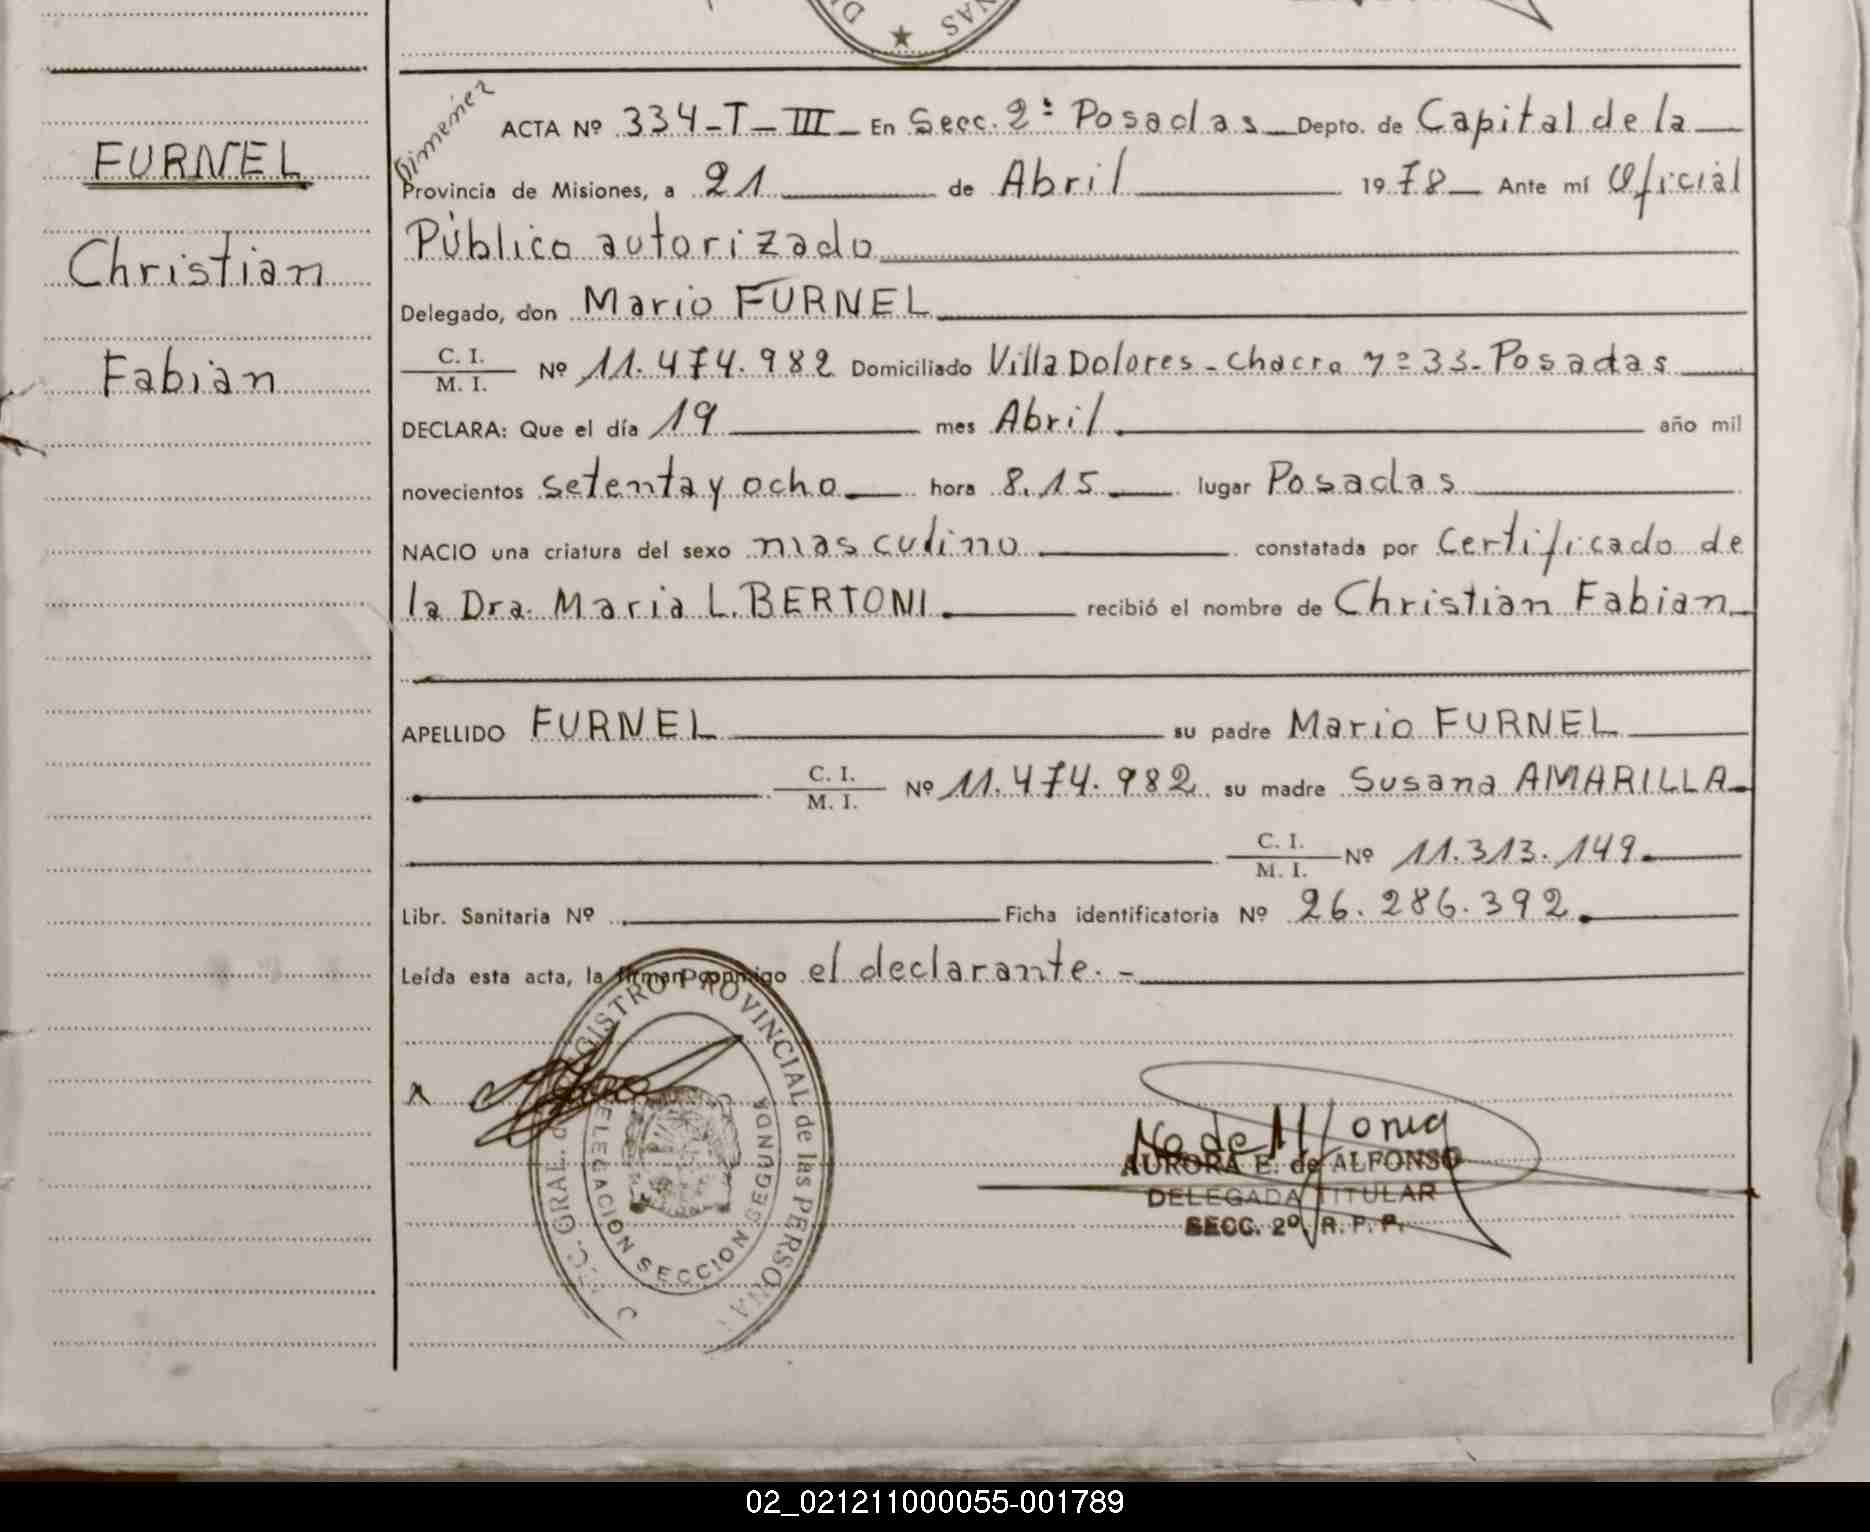 FURNEL
Christian
Fabian
NAS
Gimenez
ACTA Nº 334-T-III En Secc. 2ª Posadas Depto. de Capital de la
Provincia de Misiones, a 21 de Abril 1978 Ante mí Oficial
Público autorizado
Delegado, don Mario FURNEL
C. I.
M. I. Nº 11.474.982 Domiciliado Villa Dolores - Chacra nº 33 - Posadas
DECLARA: Que el día 19 mes Abril año mil
novecientos setenta y ocho hora 8.15 lugar Posadas
NACIO una criatura del sexo masculino constatada por Certificado de
la Dra. Maria L. BERTONI recibió el nombre de Christian Fabian
APELLIDO FURNEL su padre Mario FURNEL
C. I.
M. I. Nº 11.474.982 su madre Susana AMARILLA
C. I.
M. I. Nº 11.313.149
Libr. Sanitaria Nº Ficha identificatoria Nº 26.286.392
Leída esta acta, la firman conmigo el declarante. -
GRAL. REGISTRO PROVINCIAL de las PERSONA
DELEGACION SECCION SEGUNDA
AURORA E. de ALFONSO
DELEGADA TITULAR
SECC. 2º R. P. P.
02_021211000055-001789